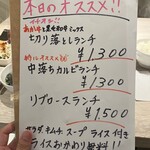 本日のオススメ!!
イチオシ!!
あか牛と黒毛和牛ミックス
切り落としランチ
¥1300
中落ちカルビランチ
¥1300
リブロースランチ
¥1,500
サラダ、キムチ、スープ ライス付き
ライスおかわり無料!!